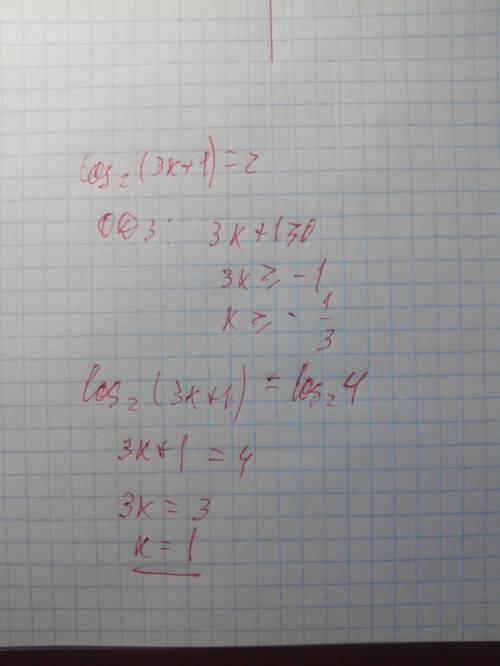 log₂(3x+1)=2
ОДЗ: 3x+1≥0
3x≥-1
x≥-1/3
log₂(3x+1)=log₂4
3x+1=4
3x=3
x=1